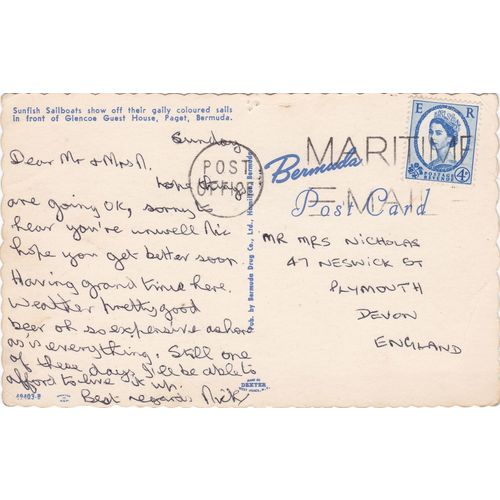 Sunfish Sailboats show off their gaily coloured sails
in front of Glencoe Guest House, Paget, Bermuda.
Sunday
Dear Mr & Mrs N.
hope things
are going OK, sorry to
hear you're unwell Nic
hope you get better soon
Having grand time here.
Weather pretty good
beer ok so expensive ashore
as is everything. Still one
of these days I'll be able to
afford to live it up.
Best regards Nick
49403-B
Pub. by Bermuda Drug Co., Ltd., Hamilton, Bermuda
MADE BY
DEXTER
WEST NYACK, N.Y.
POST
OFFICE
MARITIME
MAIL
E R
POSTAGE
REVENUE
4D
Bermuda
Post Card
MR MRS NICHOLAS
47 NESWICK ST
PLYMOUTH
DEVON
ENGLAND